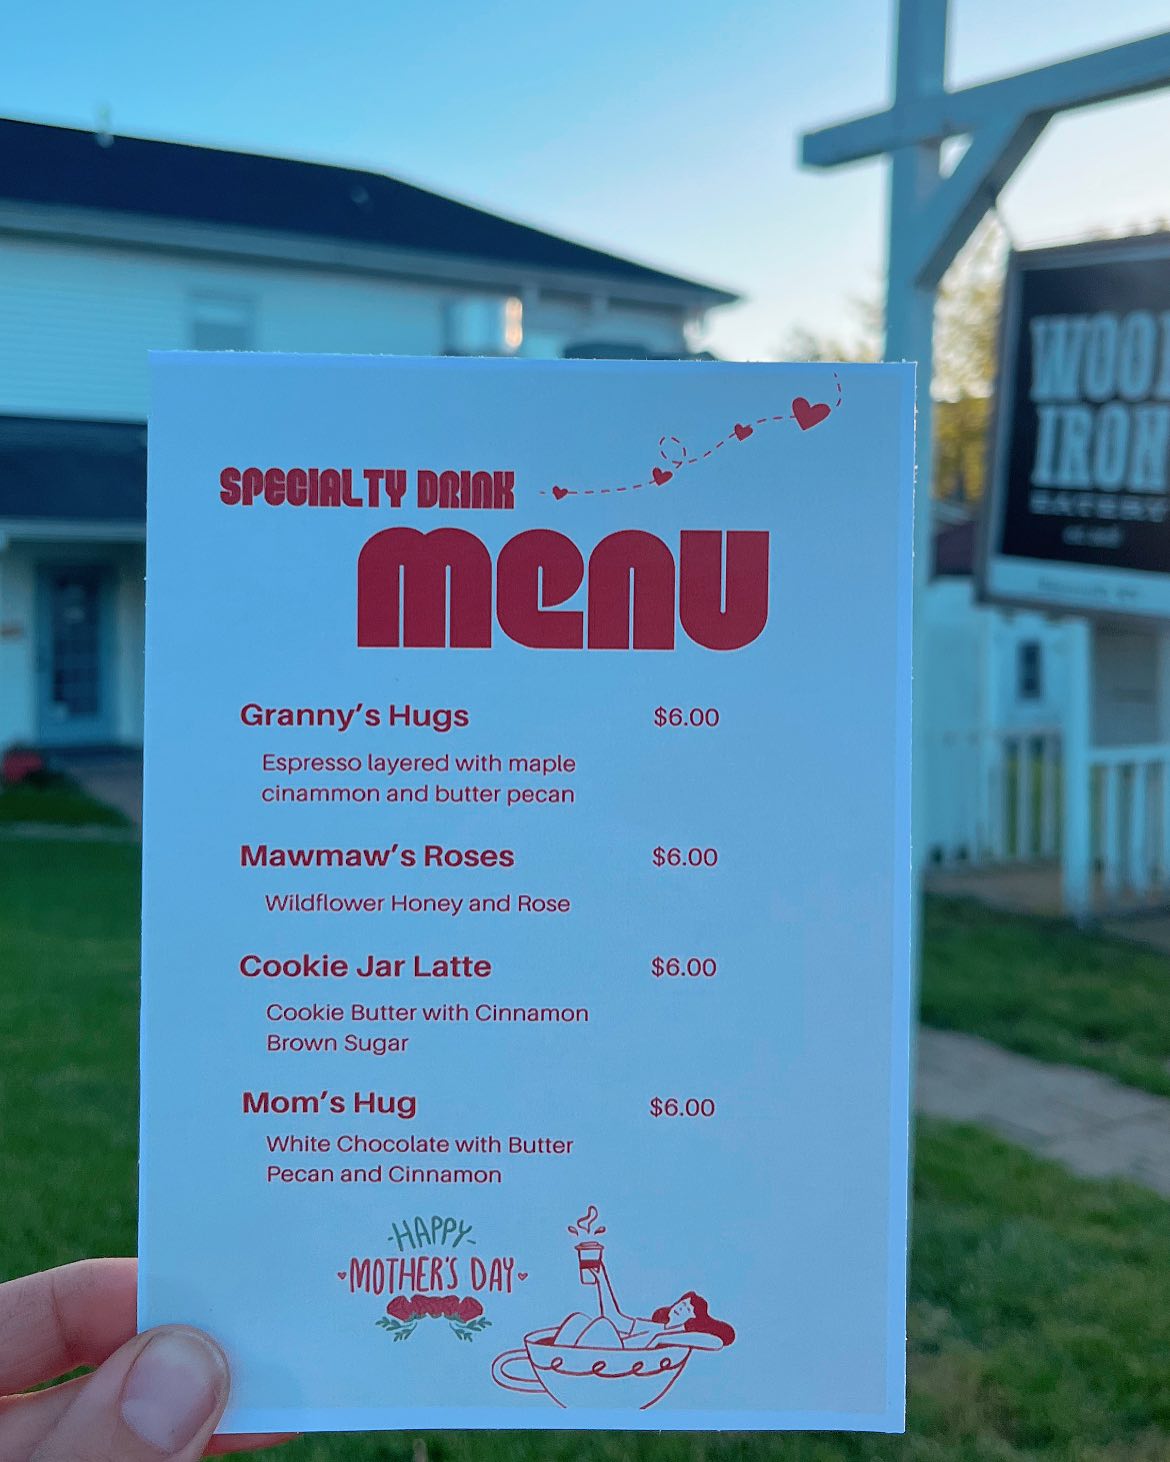 SPECIALTY DRINK
MENU
Granny's Hugs $6.00
Espresso layered with maple
cinammon and butter pecan
Mawmaw's Roses $6.00
Wildflower Honey and Rose
Cookie Jar Latte $6.00
Cookie Butter with Cinnamon
Brown Sugar
Mom's Hug $6.00
White Chocolate with Butter
Pecan and Cinnamon
HAPPY
MOTHER'S DAY
IRON